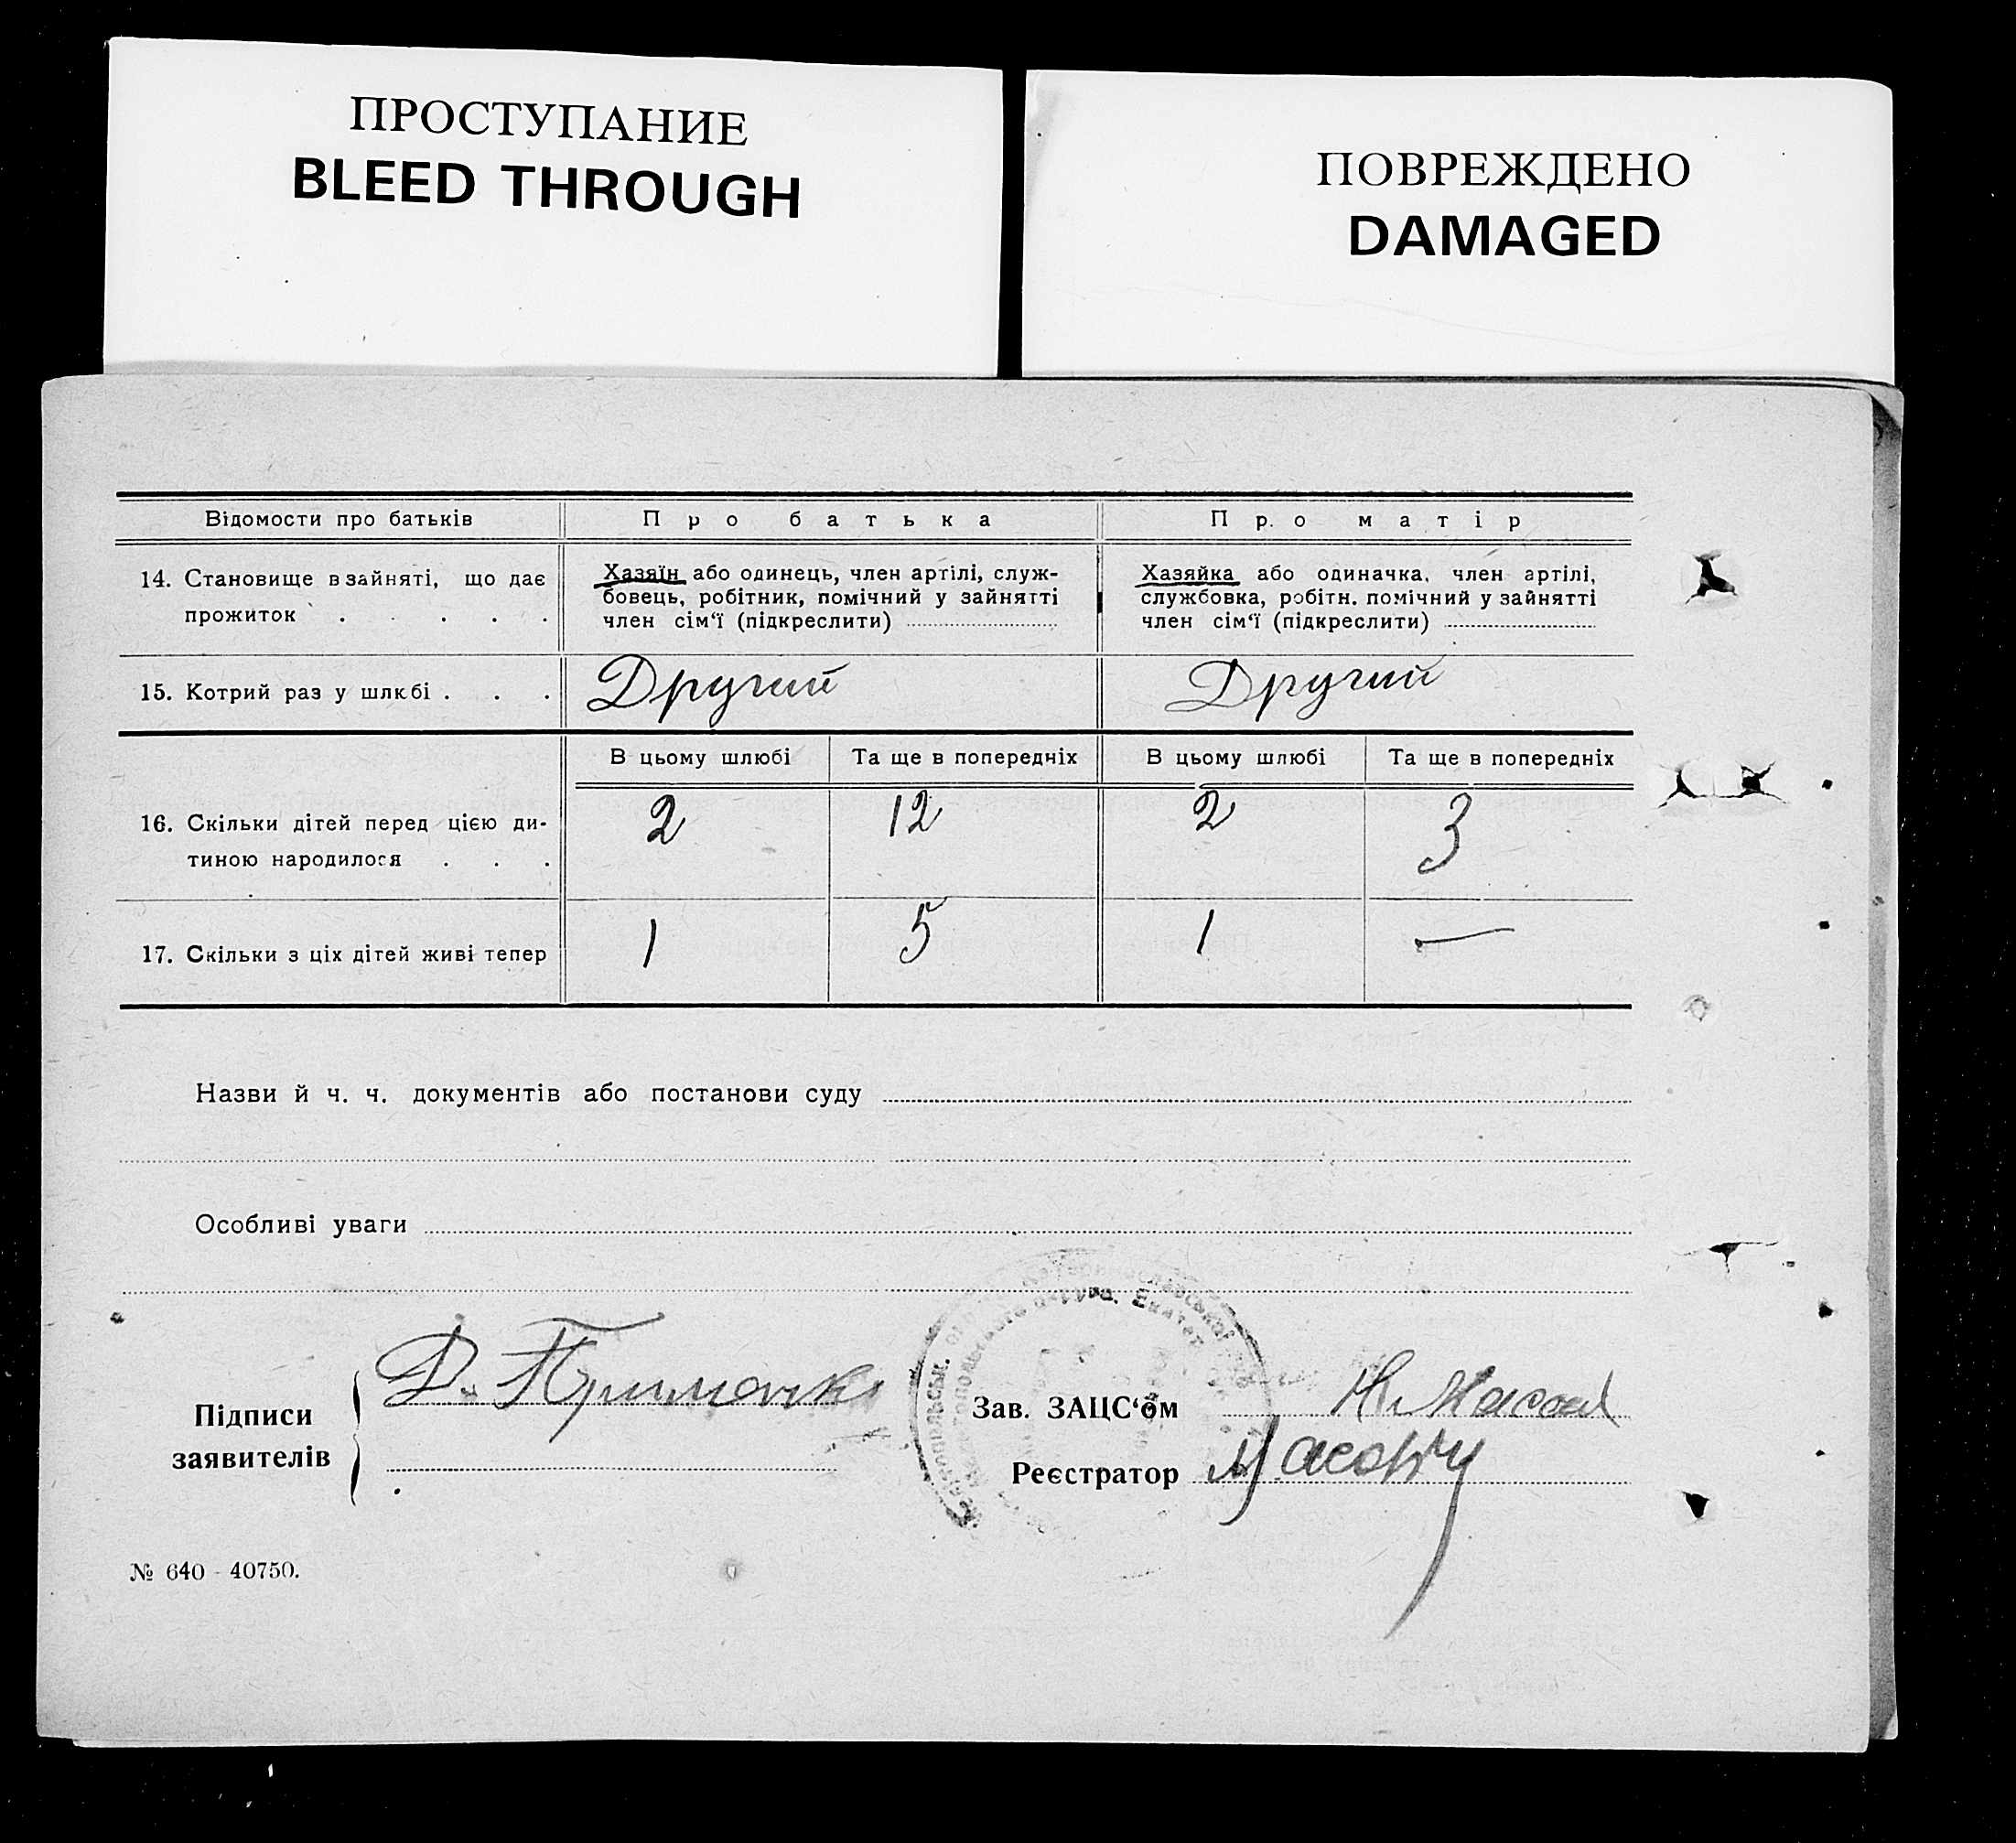 ПРОСТУПАНИЕ
BLEED THROUGH
ПОВРЕЖДЕНО
DAMAGED
Відомости про батьків
Про батька
Про матір
14. Становище в зайняті, що дає
прожиток . . . . .
Хазяїн або одинець, член артілі, служ-
бовець, робітник, помічний у зайнятті
член сім‘ї (підкреслити)
Хазяйка або одиначка, член артілі,
службовка, робітн. помічний у зайнятті
член сім‘ї (підкреслити)
15. Котрий раз у шлюбі . . .
Другий
Другий
В цьому шлюбі
Та ще в попередніх
В цьому шлюбі
Та ще в попередніх
16. Скільки дітей перед цією ди-
тиною народилося . . .
2
12
2
3
17. Скільки з ціх дітей живі тепер
1
5
1
—
Назви й ч. ч. документів або постанови суду
Особливі уваги
Підписи
заявителів
Д.
Зав. ЗАЦС‘ом
Реєстратор
№ 640 - 40750.